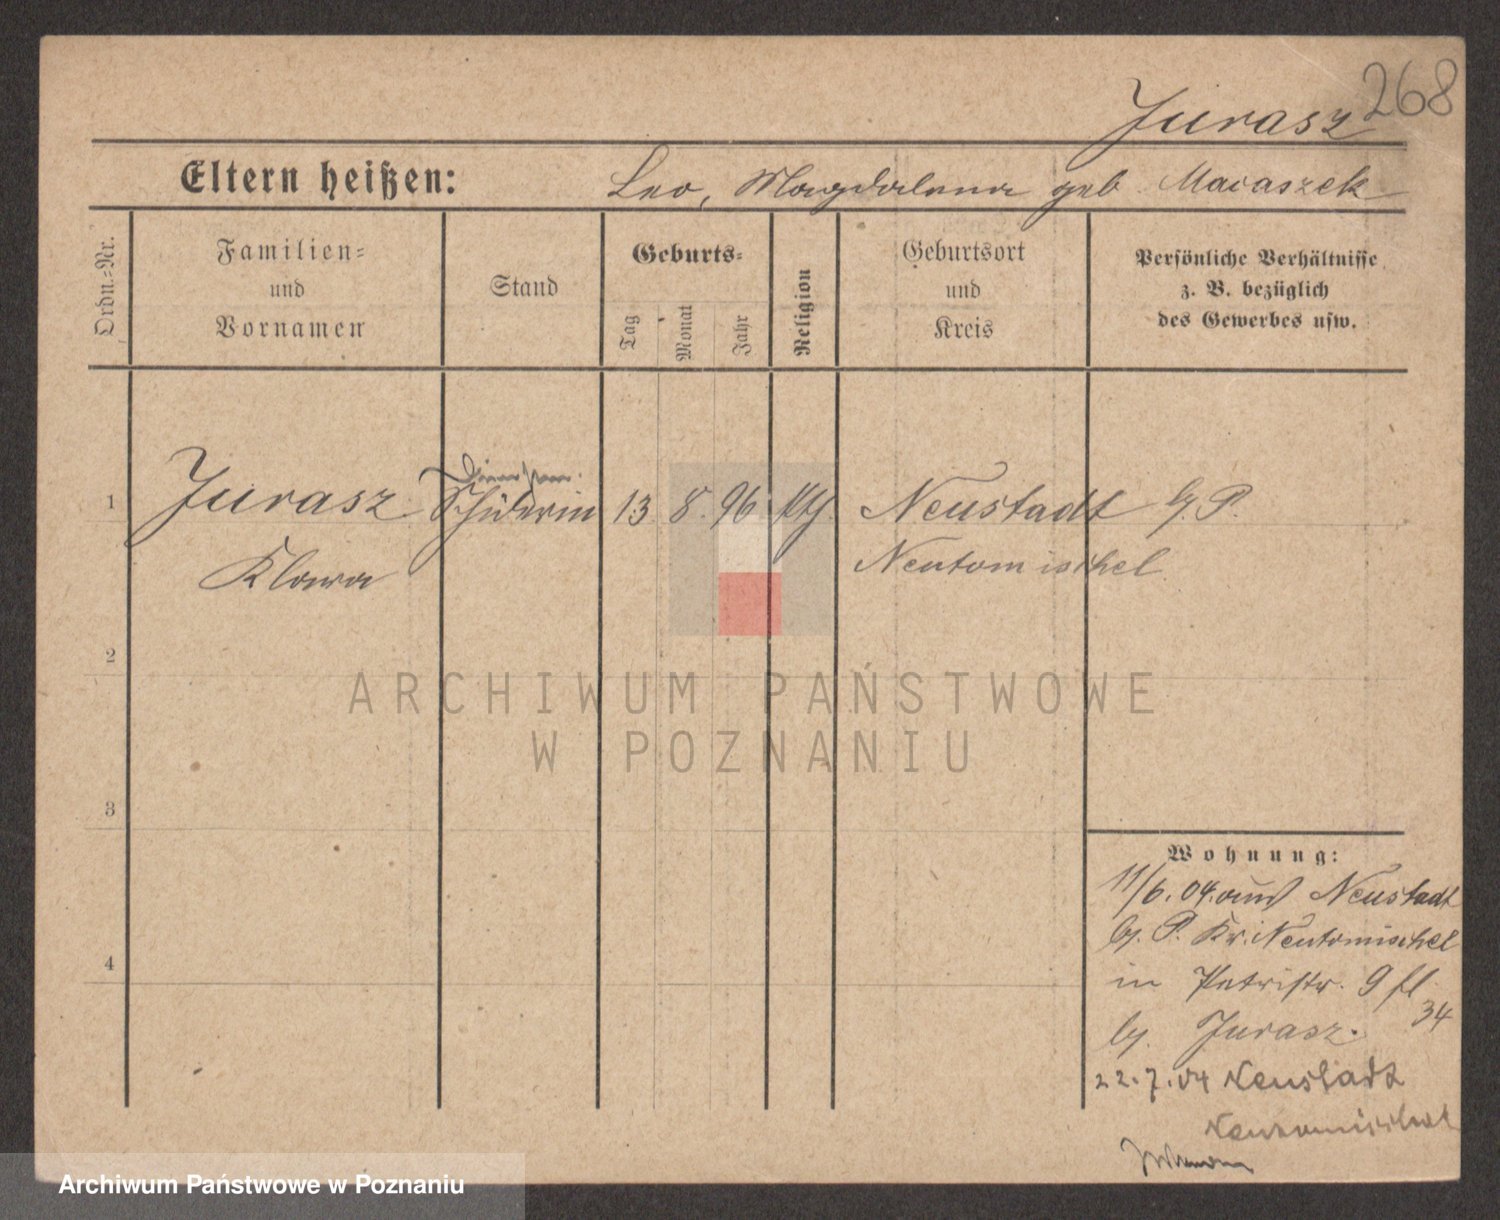 268
Jurasz
Eltern heißen: Leo, Magdalena geb Macaszek
Ordn=Nr.
Familien=
und
Vornamen
Stand
Geburts=
Tag
Monat
Jahr
Religion
Geburtsort
und
Kreis
Persönliche Verhältnisse
z. B. bezüglich
des Gewerbes usw.
1 Jurasz Schülerin 13. 8. 96 kth. Neustadt b/. P.
Klara Neutomischel
2
3
4
Wohnung:
11/6. 04. aus Neustadt
b/. P. Kr. Neutomischel
in Petristr. 9 fl
34
b/. Jurasz.
22.7.04 Neustadt
Neutomischel
ARCHIWUM PAŃSTWOWE
W POZNANIU
Archiwum Państwowe w Poznaniu